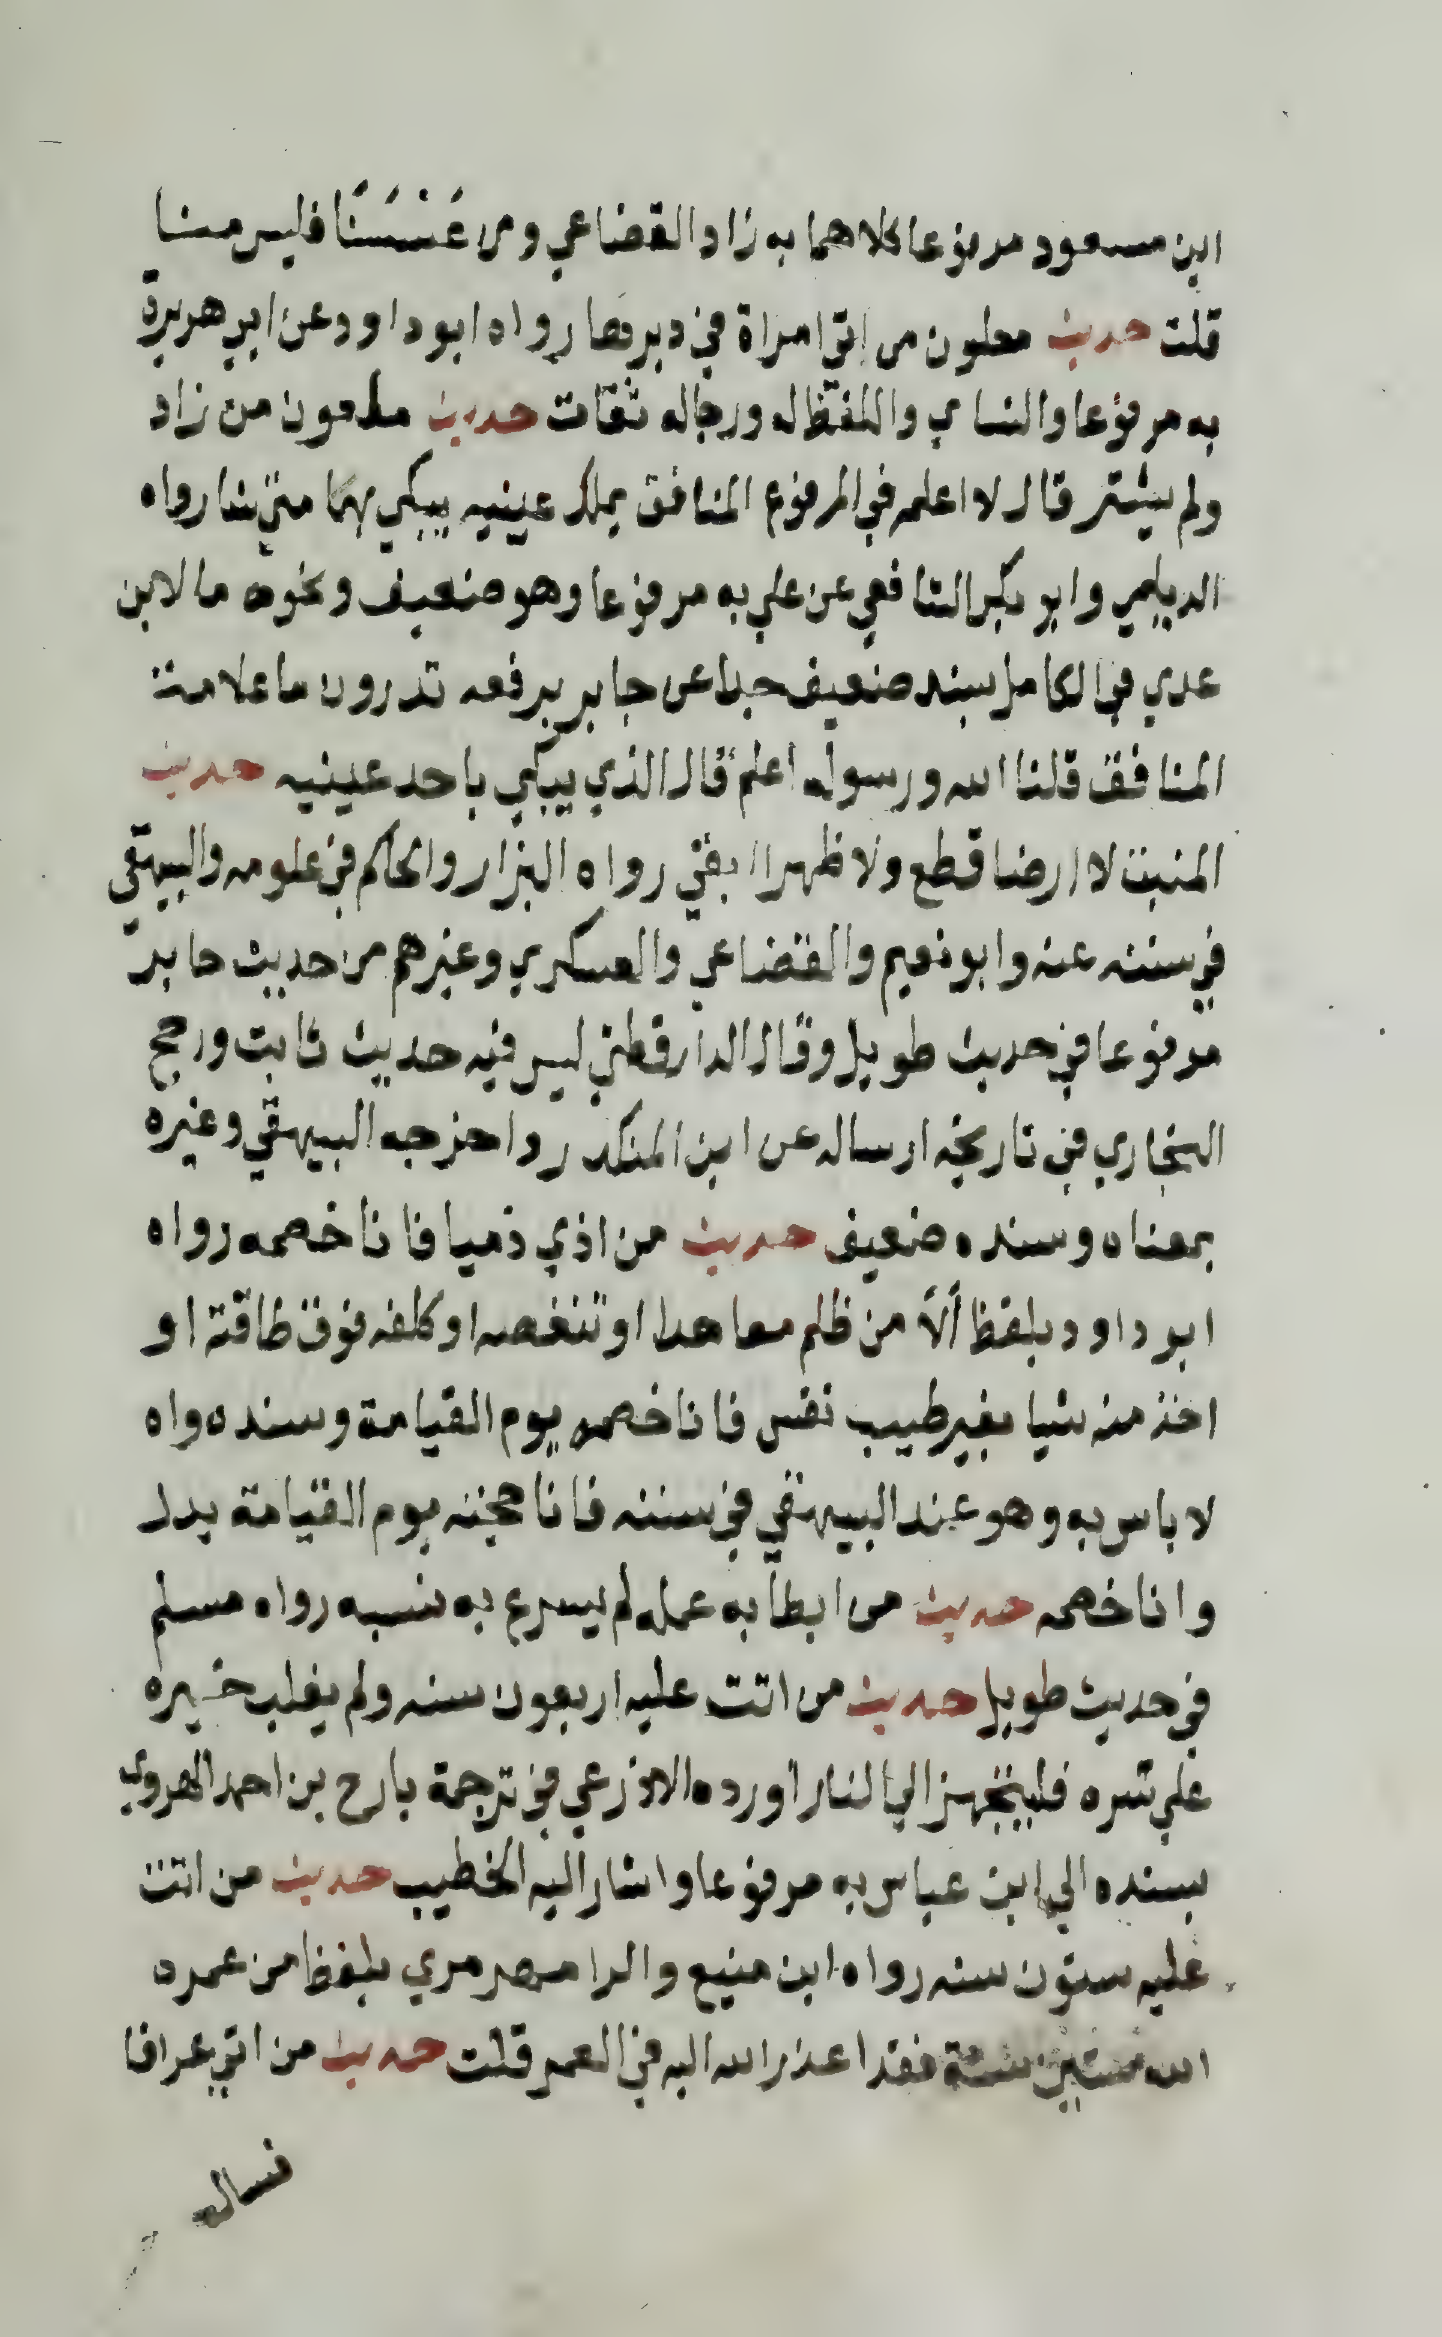 ابن مسعود مرفوعا كلاهما به زاد القضاعي ومن غشنا فليس منا
قلت حديث معلون من اتى امراة في دبرها رواه ابو داود عن ابي هريرة
به مرفوعا والنساي واللفظ له ورجاله ثقات حديث ملعون من زاد
ولم يشتر قال لا اعلمه في المرفوع المنافق يملك عينيه يبكي بهما متى شا رواه
الديلمي وابو بكر الشافعي عن علي به مرفوعا وهو ضعيف ونحوه ما لابن
عدي في الكامل بسند ضعيف جدا عن جابر يرفعه تدرون ما علامت
المنافق قلنا الله ورسوله اعلم قال الذي يبكي باحد عينيه حديث
المنبت لا ارضا قطع ولا ظهرا ابقى رواه البزار والحاكم في علومه والبيهقي
في سننه عنه وابو نعيم والقضاعي والعسكري وغيرهم من حديث جابر
مرفوعا في حديث طويل وقال الدارقطني ليس فيه حديث ثابت ورجح
البخاري في تاريخه ارساله عن ابن المنكدر واخرجه البيهقي وغيره
بمعناه وسنده ضعيف حديث من اذي ذميا فانا خصمه رواه
ابو داود بلفظ ألا من ظلم معاهدا او تنغصه او كلفه فوق طاقته او
اخذ منه شيا بغير طيب نفس فانا خصمه يوم القيامة وسنده واه
لا باس به وهو عند البيهقي في سننه فانا حجته يوم القيامة بدل
وانا خصمه حديث من ابطأ به عمله لم يسرع به نسبه رواه مسلم
في حديث طويل حديث من اتت عليه اربعون سنه ولم يغلب خيره
على شره فليتجهز الي النار اورده الاذرعي في ترجمة بارح بن احمد الهروي
بسنده الي ابن عباس به مرفوعا واشار اليه الخطيب حديث من اتت
عليه ستون سنه رواه ابن منيع والرامهرمري بلفظ من عمره
الله ستين سنة فقد اعذر الله اليه في العمر قلت حديث من اتي عرافا
فساله